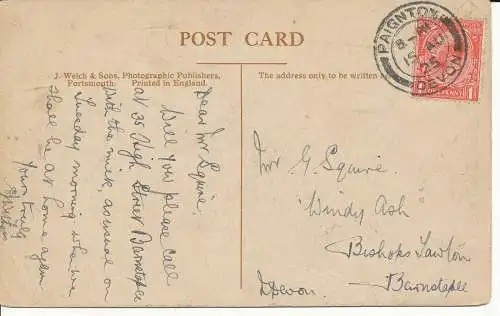 POST CARD
J. Welch & Sons, Photographic Publishers,
Portsmouth. Printed in England.
The address only to be written
Dear Mr Squire.
Will you please call
at 35 High Street Barnstaple
with the milk, as usual on
Tuesday morning when we
shall be at home again
Yours truly
Mr G Squire.
Windy Ash
Bishops Tawton
Barnstaple
Devon.
PAIGNTON
DEVON
8-
15 AU
PENNY